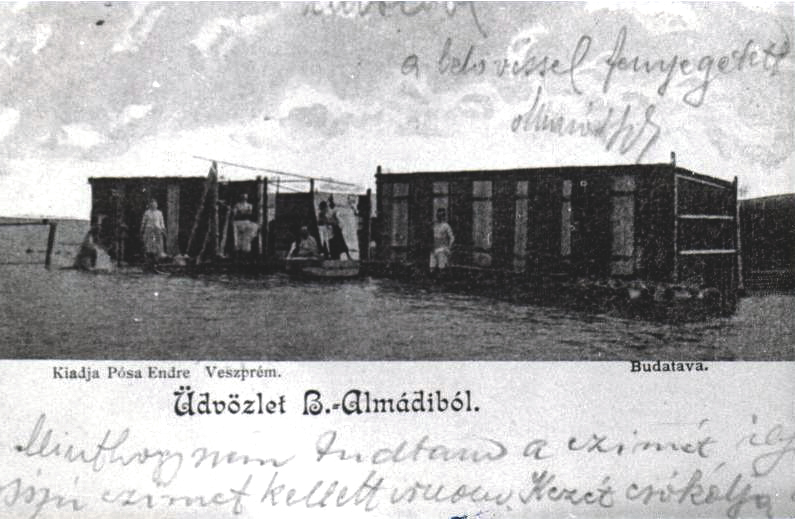 a belo vissel fenyegetett
Kiadja Pósa Endre Veszprém.
Budatava.
Üdvözlet B.-Almádiból.
Minthogy nem tudtam a czimét
czimet kellett irnom. Kezét csókolja